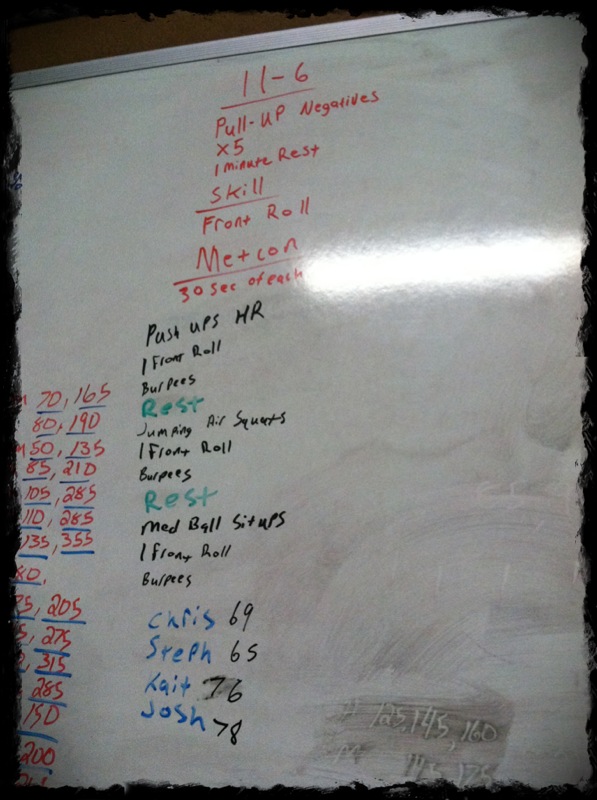 11-6
Pull-UP Negatives
x5
1 minute Rest
Skill
Front Roll
Metcon
30 sec of each
Push ups HR
1 Front Roll
Burpees
Rest
Jumping Air Squats
1 Front Roll
Burpees
Rest
Med Ball Situps
1 Front Roll
Burpees
Chris 69
Steph 65
Kait 76
Josh 78
70, 165
80, 190
50, 135
85, 210
105, 285
110, 285
135, 355
80.
5, 205
5, 275
, 315
, 285
, 150
200
125, 145, 160
145, 175